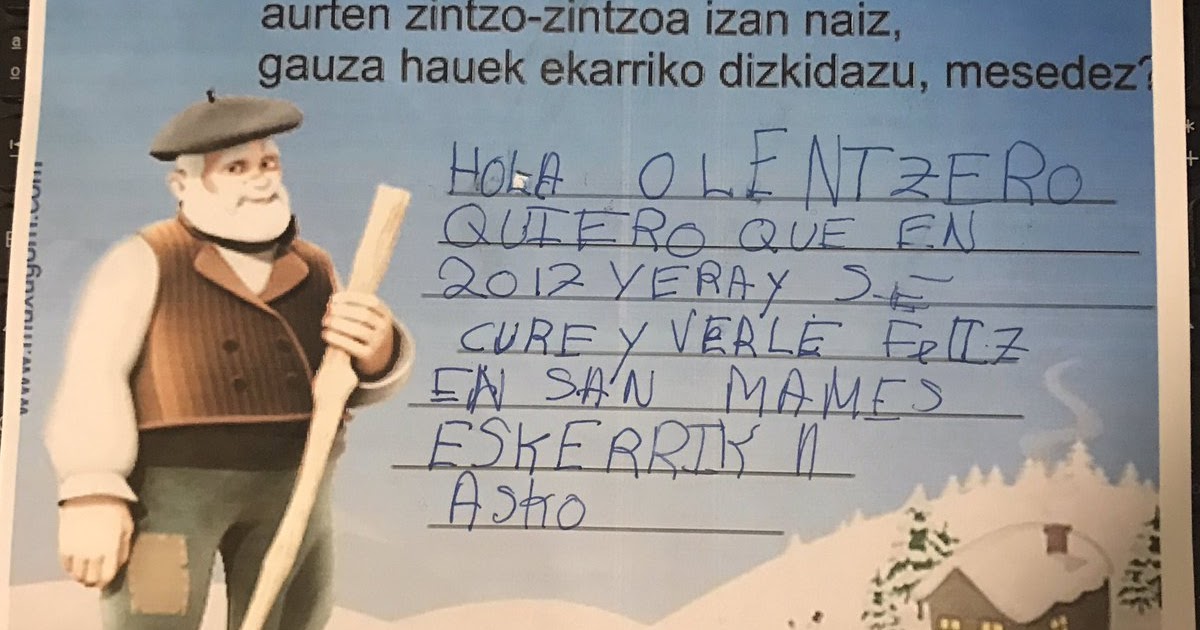 aurten zintzo-zintzoa izan naiz,
gauza hauek ekarriko dizkidazu, mesedez?
HOLA OLENTZERO
QUIERO QUE EN
2017 YERAY SE
CURE Y VERLE FELIZ
EN SAN MAMES
ESKERRIK
ASKO